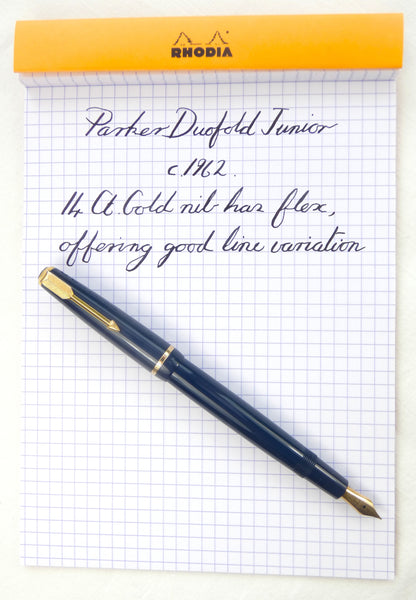 RHODIA
Parker Duofold Junior
c.1962.
14 Ct. Gold nib has flex,
offering good line variation